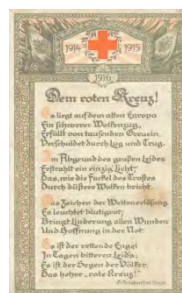 1914 1915
1916
Dem roten Kreuz!
Es liegt auf dem alten Europa
Ein schwerer Wolkenzug,
Erfüllt von tausenden Greueln,
Verschuldet durch Lug und Trug.
Am Abgrund des großen Leides
Erstrahlt ein einzig Licht,
Das, wie die Fackel des Trostes
Durch düstere Wolken bricht.
Das Zeichen der Welterlösung
Es leuchtet blutigrot;
Bringt Linderung allen Wunden
Und Hoffnung in der Not.
Es ist der rettende Engel
In Tagen bitteren Leids;
Es ist der Segen der Völker:
Das hehre „rote Kreuz!"